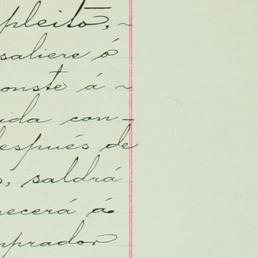 pleito,
saliere ó
onste á
ida con-
después de
, saldrá
ecerá á
prador